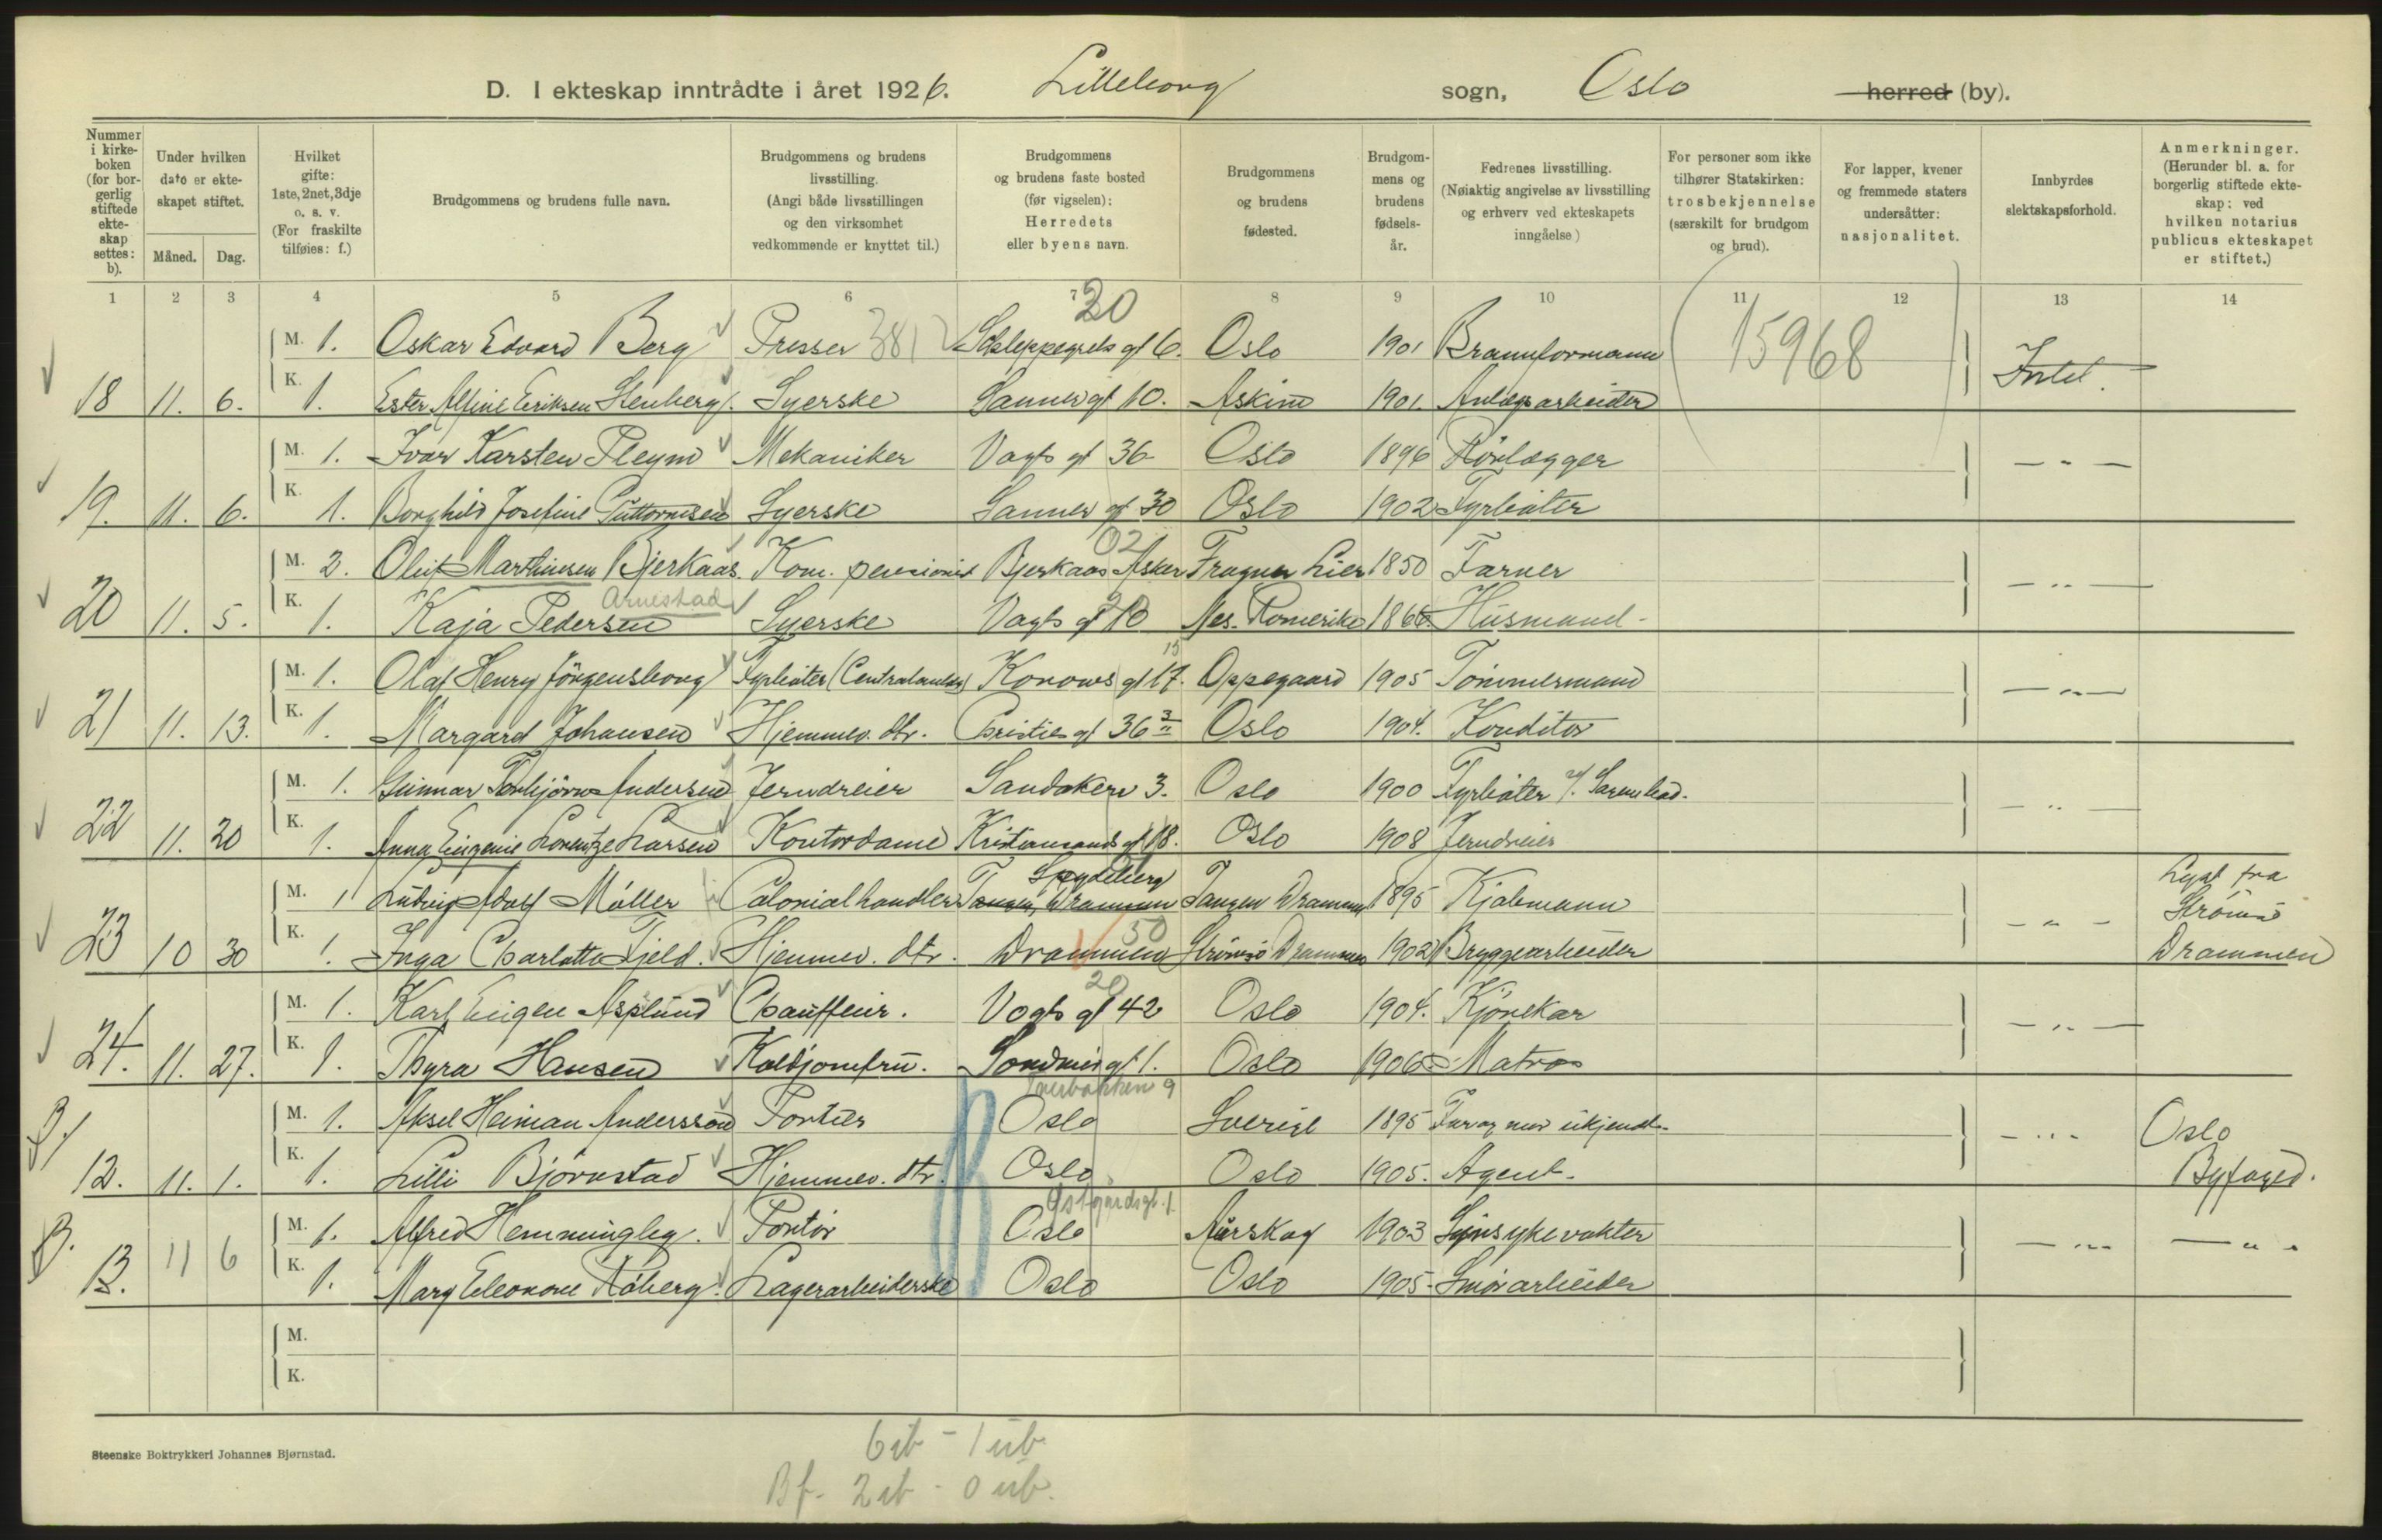 D. I ekteskap inntrådte i året 1926. Lilleborg sogn, Oslo herred (by).
Nummer i kirke-boken (for bor-gerlig stiftede ekte-skap settes: b).
Under hvilken dato er ekte-skapet stiftet.
Måned. Dag.
Hvilket gifte: 1ste, 2net, 3dje o. s. v. (For fraskilte tilføies: f.)
Brudgommens og brudens fulle navn.
Brudgommens og brudens livsstilling. (Angi både livsstillingen og den virksomhet vedkommende er knyttet til.)
Brudgommens og brudens faste bosted (før vigselen): Herredets eller byens navn.
Brudgommens og brudens fødested.
Brudgom-mens og brudens fødsels-år.
Fedrenes livsstilling. (Nøiaktig angivelse av livsstilling og erhverv ved ekteskapets inngåelse)
For personer som ikke tilhører Statskirken: trosbekjennelse (særskilt for brudgom og brud).
For lapper, kvener og fremmede staters undersåtter: nasjonalitet.
Innbyrdes slektskapsforhold.
Anmerkninger. (Herunder bl. a. for borgerlig stiftede ekte-skap: ved hvilken notarius publicus ekteskapet er stiftet.)
1 2 3 4 5 6 7 8 9 10 11 12 13 14
20
M. 1. Oskar Edvard Berg Presser 381 Schleppegrels gt 6. Oslo 1901 Brannformann 15968
18 11. 6. K. 1. Ester Alfine Eriksen Stenberg. Syerske Sanner gt 10. Askim 1901. Anlægsarbeider Intet.
M. 1. Ivar Karsten Pleym Mekaniker Vogts gt 36 Oslo 1896 Rörlægger — " —
19. 11. 6. K. 1. Borghild Josefine Guttormsen Syerske Sanner gt 30 Oslo 1902 Fyrböter
02
M. 2. Oluf Marthinsen Bjerkaas. Kom. pensionist Bjerkaas Asker Fragner Lier 1850 Farver — " —
Arnestad
20 11. 5. K. 1. Kaja Pedersen Syerske Vogts gt 10 Nes. Romerike 1866 Husmand-
15
M. 1. Olaf Henry Jörgensborg Fyrböter (Centralanlæg) Konows gt 17. Oppegaard 1905 Tömmermand — " —
21 11. 13. K. 1. Margard Johansen Hjemmev. dtr. Christies gt 36 Oslo 1904. Konditor
M. 1. Gunnar Thorbjörn Andersen Jerndreier Sandakerv 3. Oslo 1900 Fyrböter — " —
22 11. 20 K. 1. Anna Eugenie Lorentze Larsen Kontordame Kristiansands gt 18. Oslo 1908 Jerndreier
Spydeberg
M. 1 Ludvig Adolf Möller Colonialhandler Tangen, Drammen Tangen Drammen 1895 Kjöbmann — " — Lyst fra Strömsö Drammen
50
23 10 30 K. 1. Inga Charlotte Fjeld. Hjemmev. dtr. Drammen Strömsö Drammen 1902 Bryggearbeider
20
M. 1. Karl Eugen Asplund Chauffeur. Vogts gt 42 Oslo 1904. Kjörekar — " —
24. 11. 27. K. 1. Thyra Hansen Koldjomfru. Sondres gt 1. Oslo 1906 Matros
M. 1. Aksel Heiman Anderssen Portier Oslo Sverige 1895 Far og mor ukjendt. — " — Oslo Byfoged.
12. 11. 1. K. 1. Lilli Björnstad Hjemmev. dtr. Oslo Oslo 1905. Agent.
Østgaardsgt. 1
B. M. 1. Alfred Hemmingby. Portör Oslo Aurskog 1903 Sinsykevokter — " — — " —
13. 11 6 K. 1. Mary Eleonore Råberg. Lagerarbeiderske Oslo Oslo 1905. Smörarbeider
M.
K.
Steenske Boktrykkeri Johannes Bjørnstad.
6 ib - 1 ub
Bf. 2 ib - 0 ub.